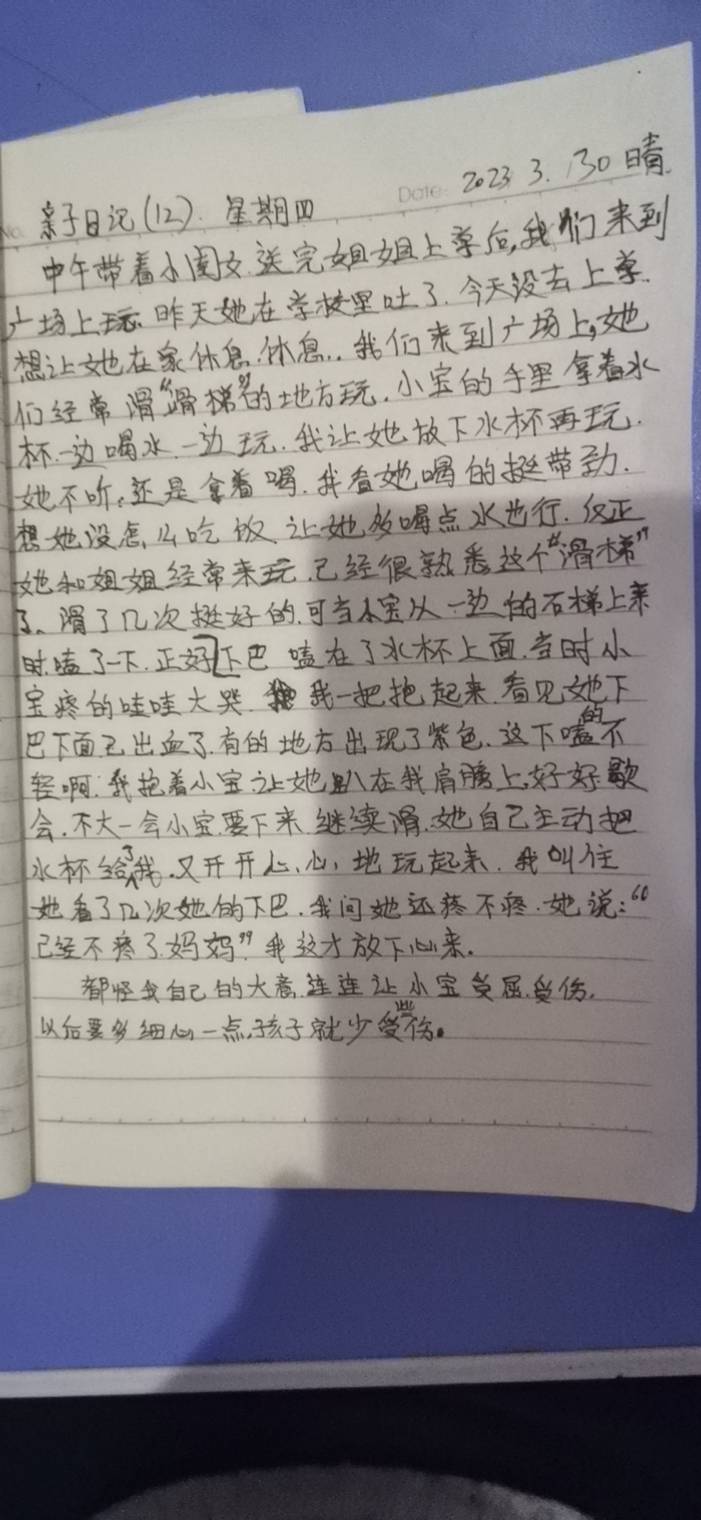 Date: 2023 3. 30 晴.
No. 亲子日记(12). 星期四
中午带着小闺女送完姐姐上学后,我们来到
广场上玩.昨天她在学校里吐了.今天没去上学.
想让她在家休息.休息..我们来到广场上,她
们经常滑“滑梯”的地方玩.小宝的手里拿着水
杯.一边喝水一边玩.我让她放下水杯再玩.
她不听,还是拿着喝.我看她喝的挺带劲.
想她没怎么吃饭.让她多喝点水也行.反正
她和姐姐经常来玩.已经很熟悉这个“滑梯”
了、滑了几次挺好的.可当小宝从一边的石梯上来
时.嗑了一下.正好下巴嗑在了水杯上面.当时小
宝疼的哇哇大哭 我一把抱起来.看见她下
巴下面已出血了.有的地方出现了紫色.这下嗑的不
轻啊.我抱着小宝让她趴在我肩膀上,好好歇
会.不大一会小宝要下来继续滑.她自己主动把
水杯给了我.又开开心、心、地玩起来.我叫住
她看了几次她的下巴.我问她还疼不疼.她说:“
已经不疼了妈妈”.我这才放下心来.
都怪我自己的大意.连连让小宝受屈.受伤.
以后要多细心一点,孩子就少受些伤。